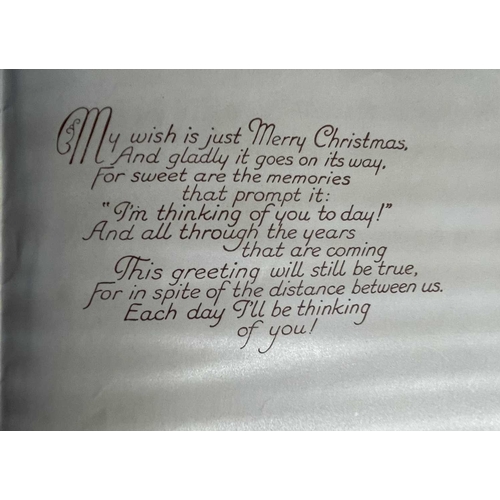 My wish is just Merry Christmas,
And gladly it goes on its way,
For sweet are the memories
that prompt it:
"I'm thinking of you to day!"
And all through the years
that are coming
This greeting will still be true,
For in spite of the distance between us.
Each day I'll be thinking
of you!